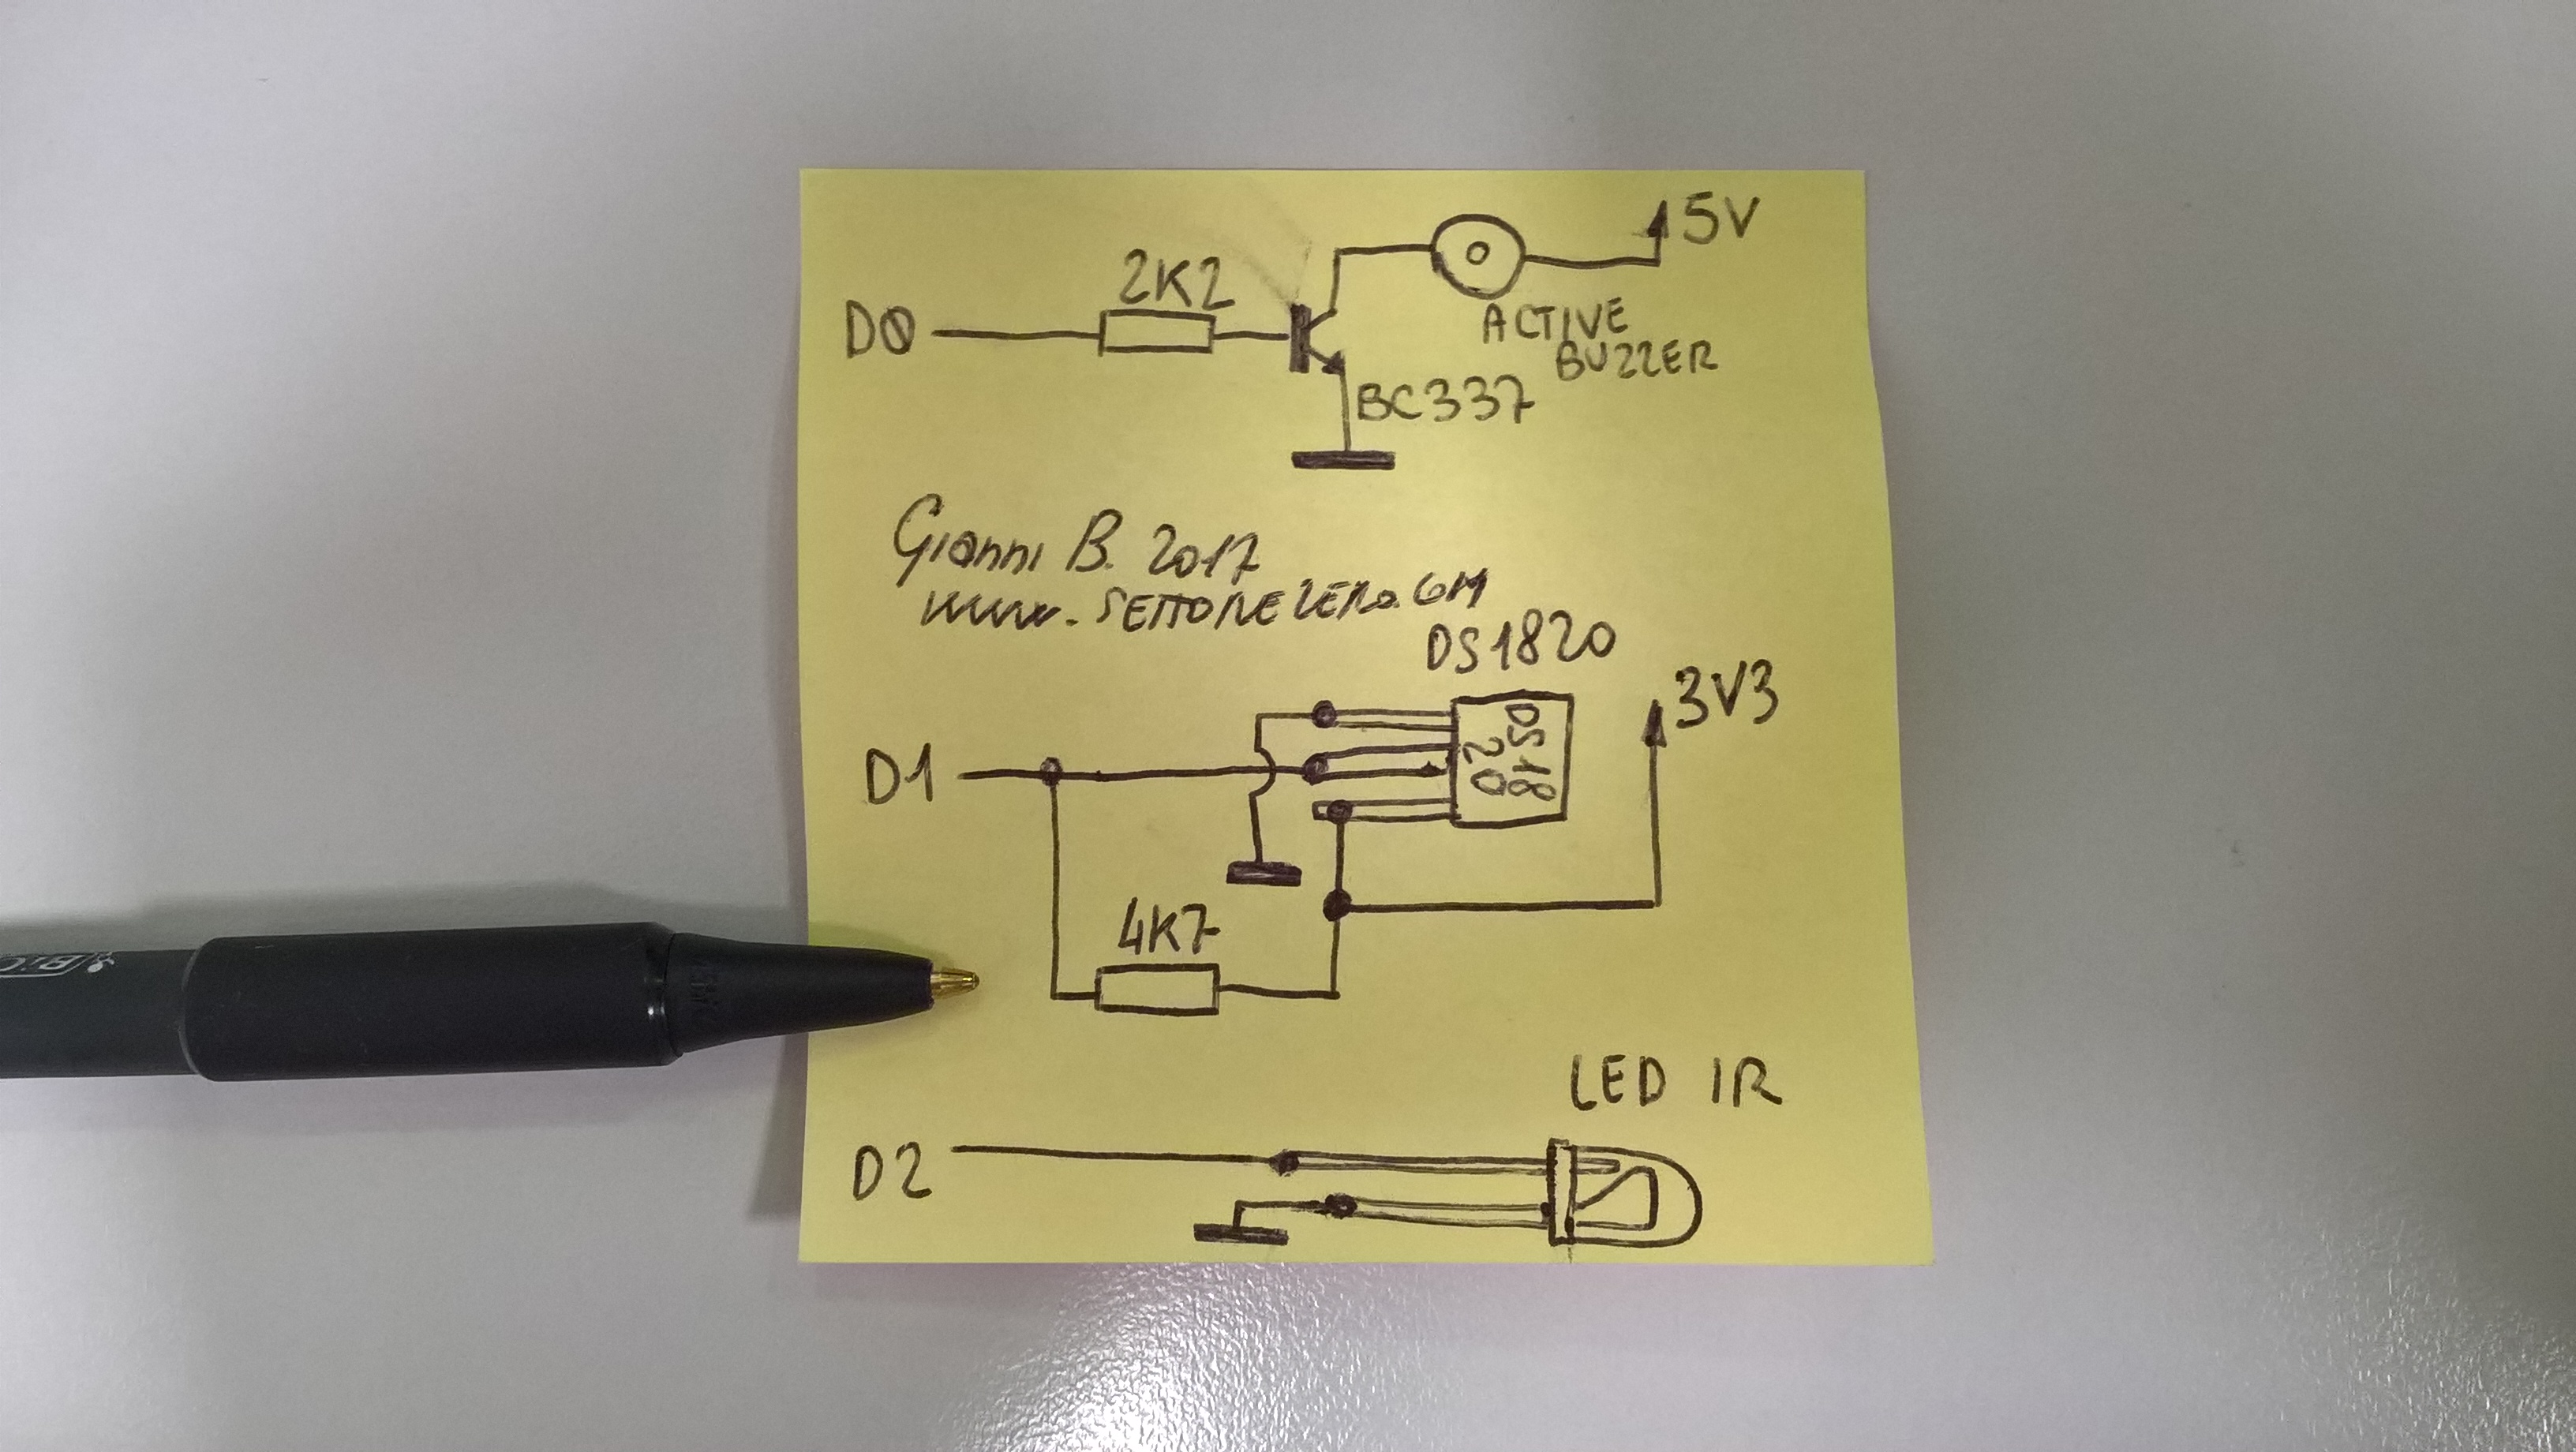 5V
2K2
D0
ACTIVE
BUZZER
BC337
Gianni B. 2017
www.SETTOREZERO.COM
DS1820
3V3
DS18
20
D1
4K7
BiC
LED IR
D2